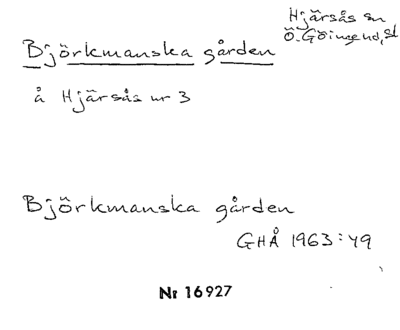 Hjärsås sn
Ö. Göinge hd, sk
Björkmanska gården
å Hjärsås nr 3
Björkmanska gården
GHÅ 1963:49
Nr 16927